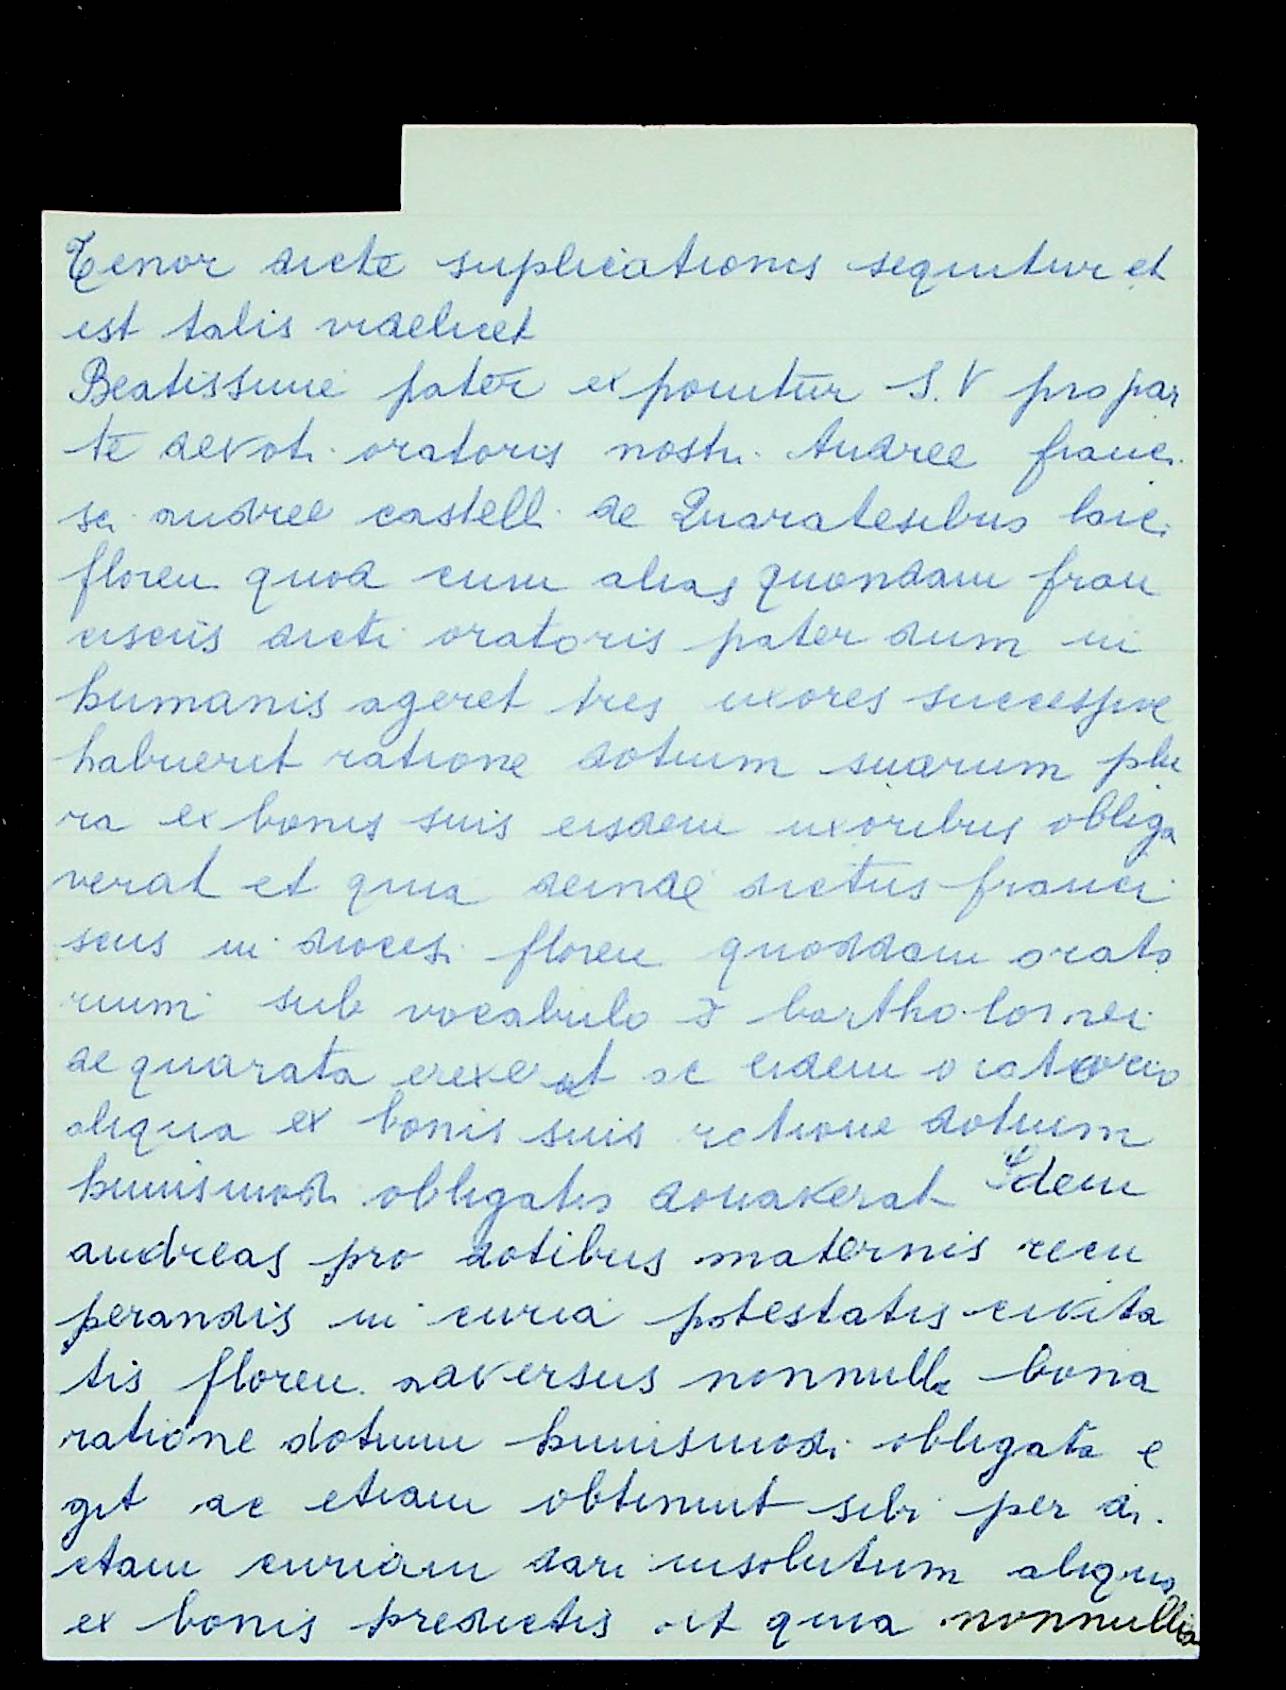 Tenor dicte suplicationis sequitur et
est talis videlicet
Beatissime pater exponitur S. V pro par
te devoti oratoris nostri Andree franci
sci andree castelli de Quaratesibus laici
floren quod cum alias quondam fran
ciscus dicti oratoris pater dum in
humanis ageret tres uxores successive
habueret ratione dotium suarum plu
ra ex bonis suis eisdem uxoribus obliga
verat et quia deinde dictus franci
scus in diocesi floren quoddam orato
rium sub vocabulo S bartholomei
de quarata erexerat ac eidem oratorio
aliqua ex bonis suis ratione dotium
huiusmodi obligatis donaverat Idem
andreas pro dotibus maternis recu
perandis in curia potestatis civita
tis floren. adversus nonnulla bona
ratione dotium huiusmodi obligata e
git ac etiam obtinuit sibi per di
ctam curiam dari insolutum aliqua
ex bonis predictis et quia nonnulli